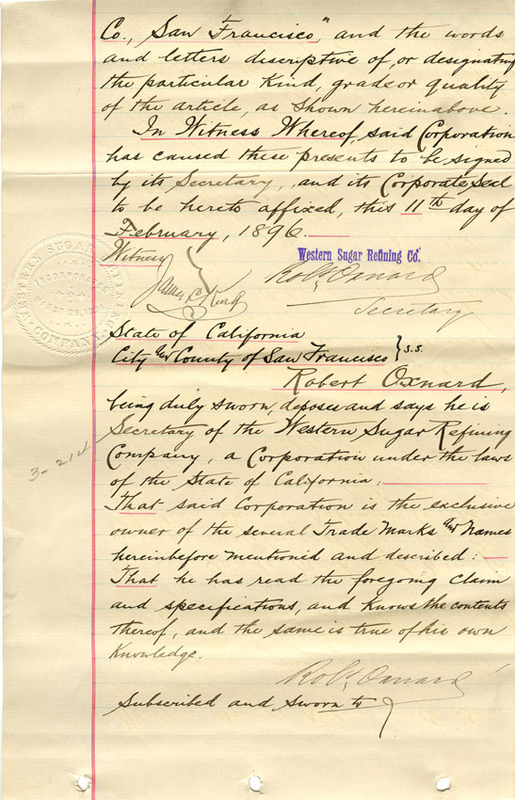 Co., San Francisco," and the words
and letters descriptive of, or designating
the particular kind, grade or quality
of the article, as shown hereinabove.
In Witness Whereof, said Corporation
has caused these presents to be signed
by its Secretary, and its Corporate Seal
to be hereto affixed, this 11th day of
February, 1896.
Witness
Western Sugar Refining Co.
James
Robt Oxnard
Secretary
State of California
City and County of San Francisco } s.s.
Robert Oxnard,
being duly sworn, deposes and says he is
Secretary of the Western Sugar Refining
Company, a Corporation under the laws
of the State of California:
3-21st
That said Corporation is the exclusive
owner of the several Trade Marks and Names
hereinbefore mentioned and described:
That he has read the foregoing claim
and specifications, and knows the contents
thereof, and the same is true of his own
knowledge.
Robt Oxnard
Subscribed and sworn to